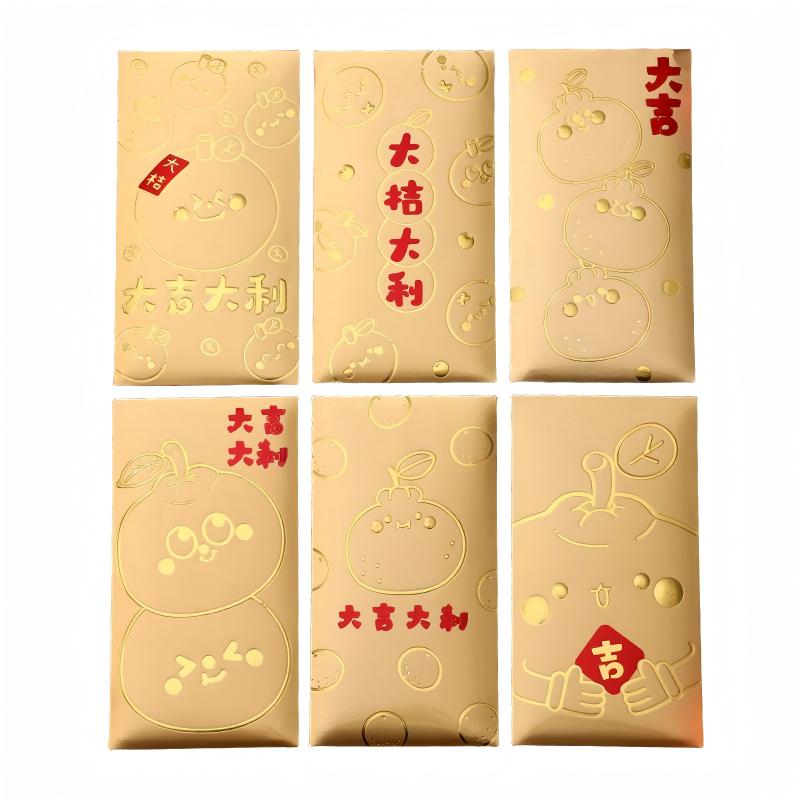 大桔
大吉大利
大桔大利
大吉
大吉
大利
大吉大利
吉